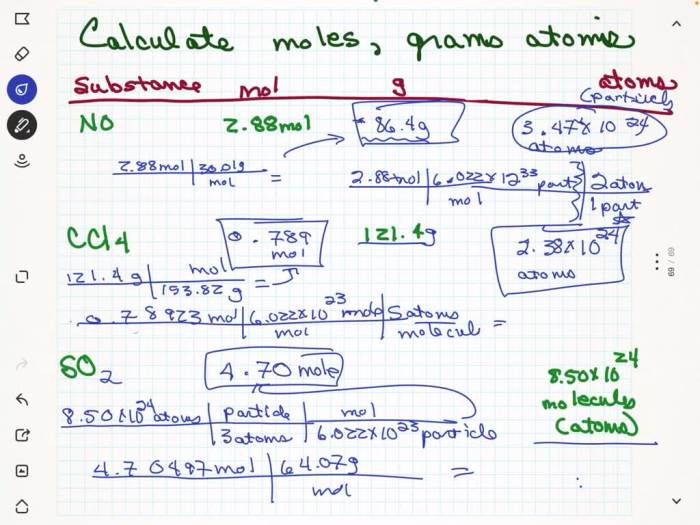 Calculate moles, grams atoms
Substance mol g atoms
(particles
NO 2.88mol 86.4g 3.47x10 24
atoms
2.88mol 30.01g =
mol
2.88mol 6.022x10 23 part 2 atom
mol 1 part
CCl4 0.789 121.4g 2.38x10 24
mol atoms
121.4g mol =
153.82g
0.78923 mol 6.022x10 23 5 atoms =
mol molecul
SO2 4.70 mole 8.50x10 24
molecules
(atoms)
8.50x10 24 atoms particle mol
3 atoms 6.022x10 23 particle
4.70497mol 64.07g =
mol
69 / 69